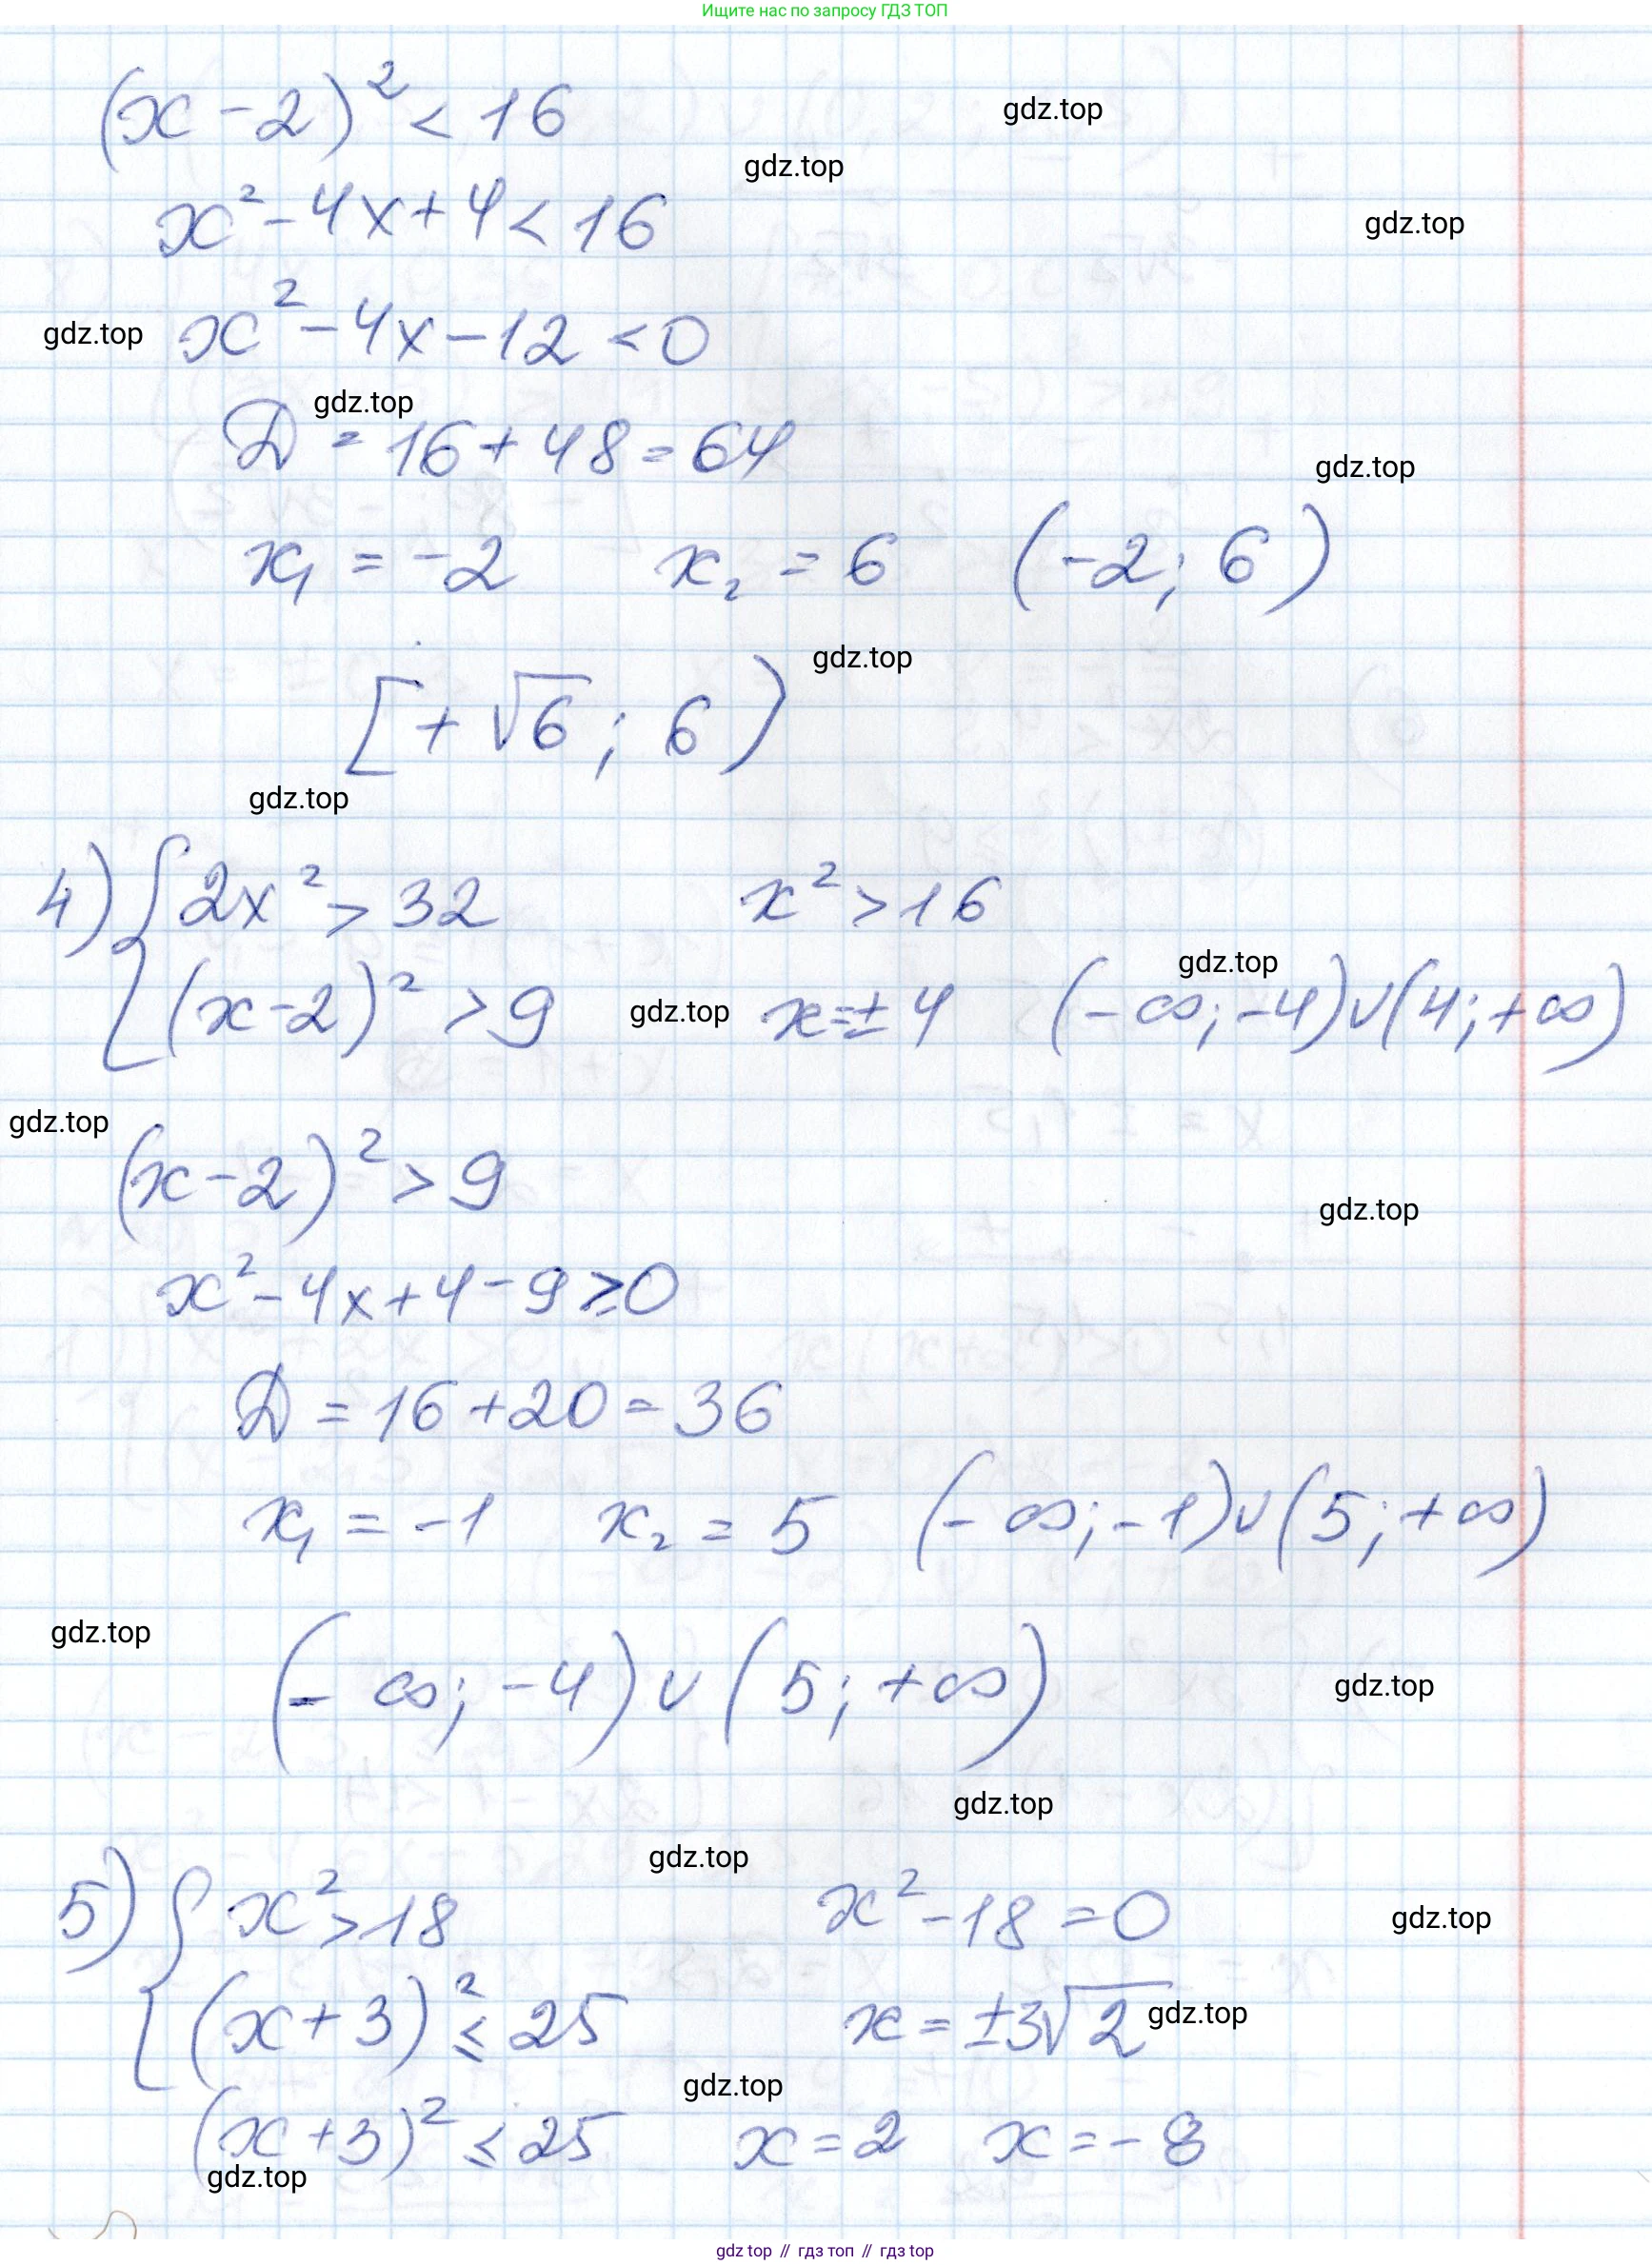 Ищите нас по запросу ГДЗ ТОП
(x-2)² < 16
gdz.top
gdz.top
x²-4x+4<16
gdz.top
gdz.top
x²-4x-12<0
gdz.top
D = 16+48=64
gdz.top
x₁ = -2 x₂ = 6 (-2; 6)
gdz.top
[+√6; 6)
gdz.top
4) { 2x² > 32 x² > 16
gdz.top
(x-2)² > 9 gdz.top x=±4 (-∞; -4)∪(4; +∞)
gdz.top
(x-2)² > 9
gdz.top
x²-4x+4-9≥0
D = 16+20=36
x₁ = -1 x₂ = 5 (-∞; -1)∪(5; +∞)
gdz.top
(-∞; -4)∪(5; +∞)
gdz.top
gdz.top
gdz.top
5) { x² > 18 x²-18=0
gdz.top
(x+3)² ≤ 25 x=±3√2
gdz.top
gdz.top
(x+3)² ≤ 25 x=2 x=-8
gdz.top
gdz top // гдз топ // гдз top